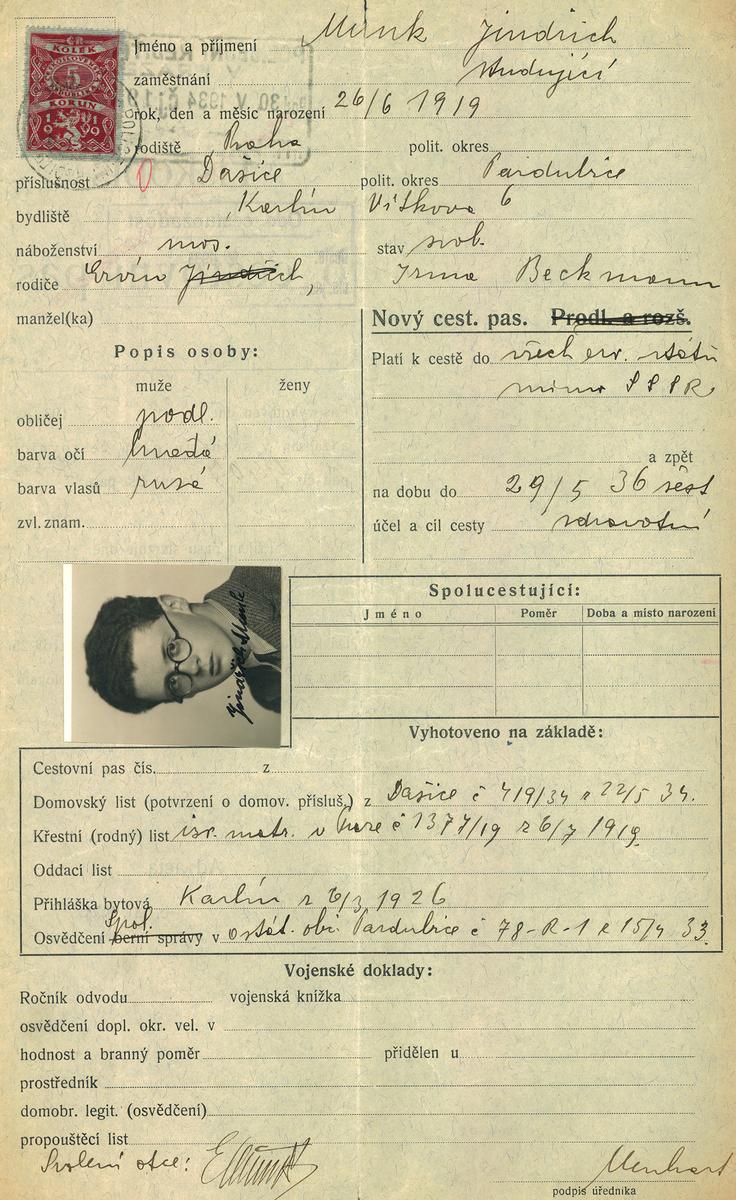 ČR
KOLEK
5
KORUN
1919
Jméno a příjmení Munk Jindřich
zaměstnání studující
rok, den a měsíc narození 26/6 1919
rodiště Praha polit. okres
příslušnost Dašice polit. okres Pardubice
bydliště Karlín Vítkova 6
náboženství mos. stav svob.
rodiče Ervín Jindřich, Irma Beckmann
manžel(ka)
Nový cest. pas. Prodl. a rozš.
Popis osoby:
muže ženy
obličej podl.
barva očí hnědá
barva vlasů rusé
zvl. znam.
Platí k cestě do všech evr. států
mimo SSSR
a zpět
na dobu do 29/5 36 šest
účel a cíl cesty zdravotní
Jindřich Munk
Spolucestující:
Jméno Poměr Doba a místo narození
Vyhotoveno na základě:
Cestovní pas čís. z
Domovský list (potvrzení o domov. přísluš.) z Dašice č 419/34 z 22/5 34.
Křestní (rodný) list isr. matr. v Praze č 1377/19 z 6/7 1919
Oddací list
Přihláška bytová Karlín z 6/3 1926
Spol.
Osvědčení berní správy v ostát. obč. Pardubice č 78-R-1 z 15/4 33.
Vojenské doklady:
Ročník odvodu vojenská knížka
osvědčení dopl. okr. vel. v
hodnost a branný poměr přidělen u
prostředník
domobr. legit. (osvědčení)
propouštěcí list
Svolení otce: EMunk
Menhart
podpis úředníka